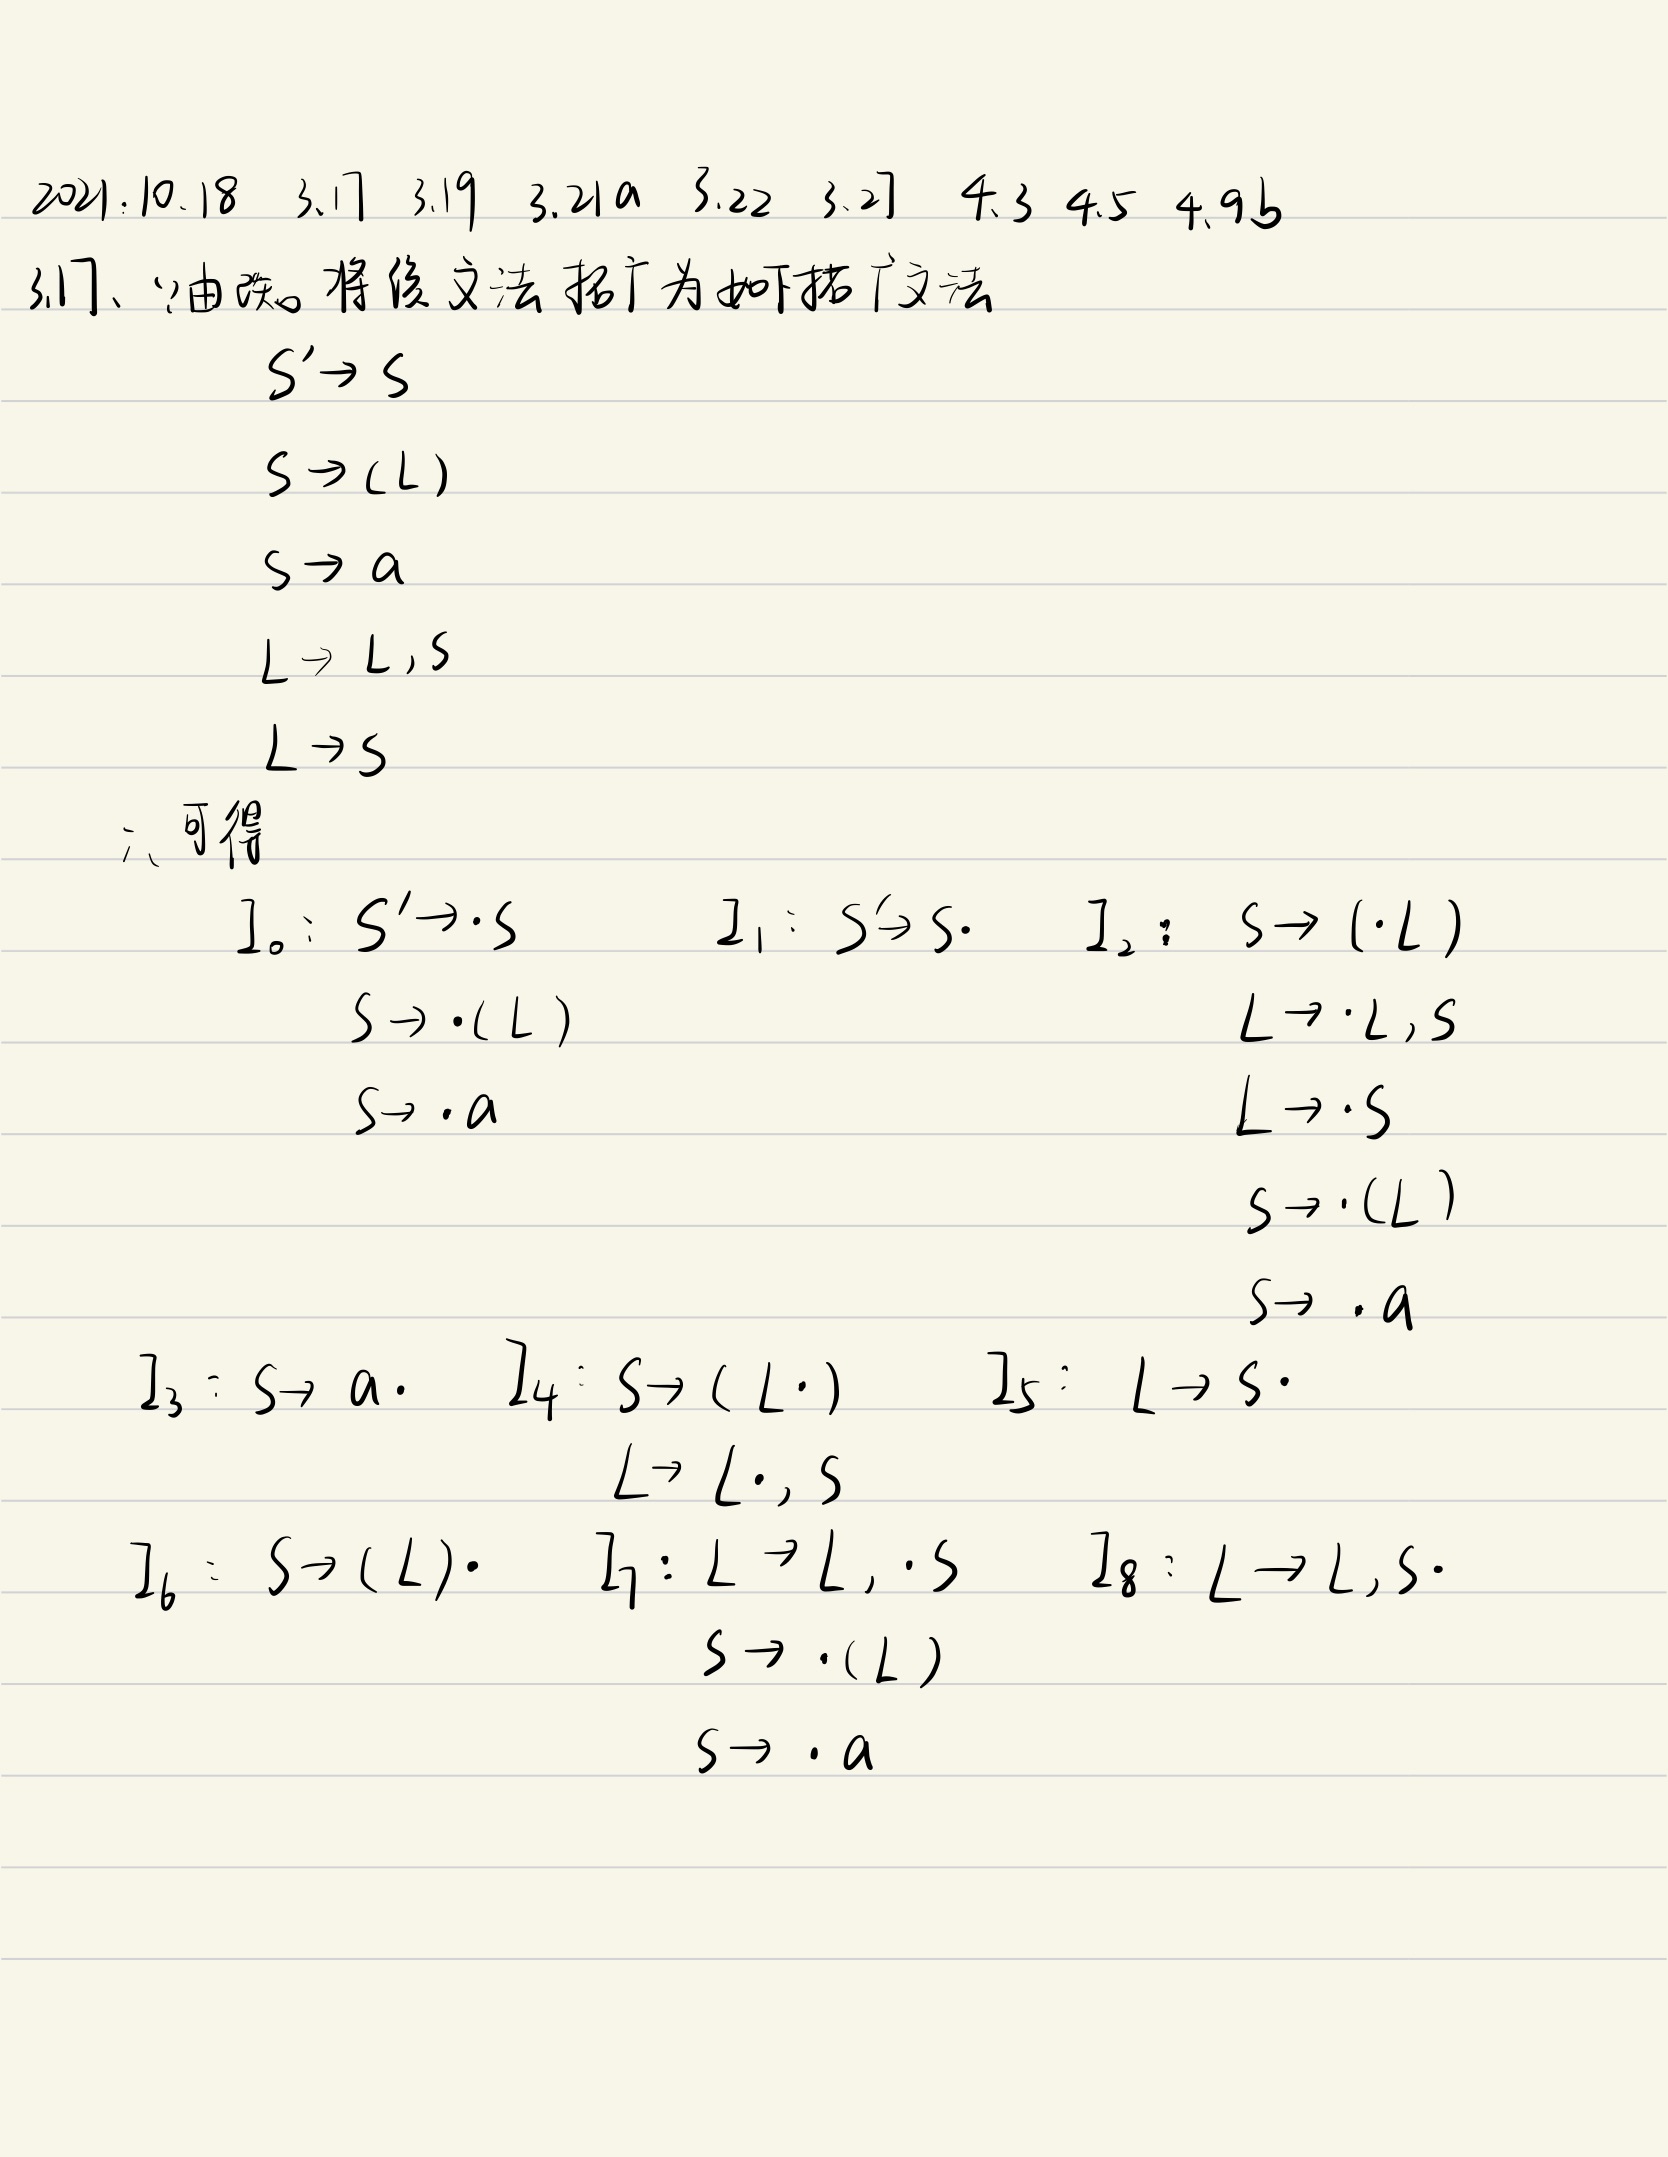 2021.10.18 3.17 3.19 3.21a 3.22 3.27 4.3 4.5 4.9b
3.17、∵由题。将该文法拓广为如下拓广文法
S'→S
S→(L)
S→a
L→L,S
L→S
∴可得
I₀: S'→·S I₁: S'→S· I₂: S→(·L)
S→·(L) L→·L,S
S→·a L→·S
S→·(L)
S→·a
I₃: S→a· I₄: S→(L·) I₅: L→S·
L→L·,S
I₆: S→(L)· I₇: L→L,·S I₈: L→L,S·
S→·(L)
S→·a